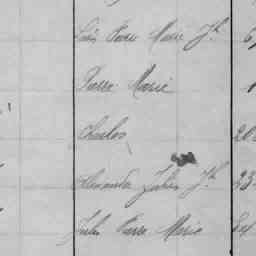 Louis Pierre Marie Jh 6
Pierre Marie 1
Charles 20
Alexandre Jules Jh 23
Jules Pierre Marie